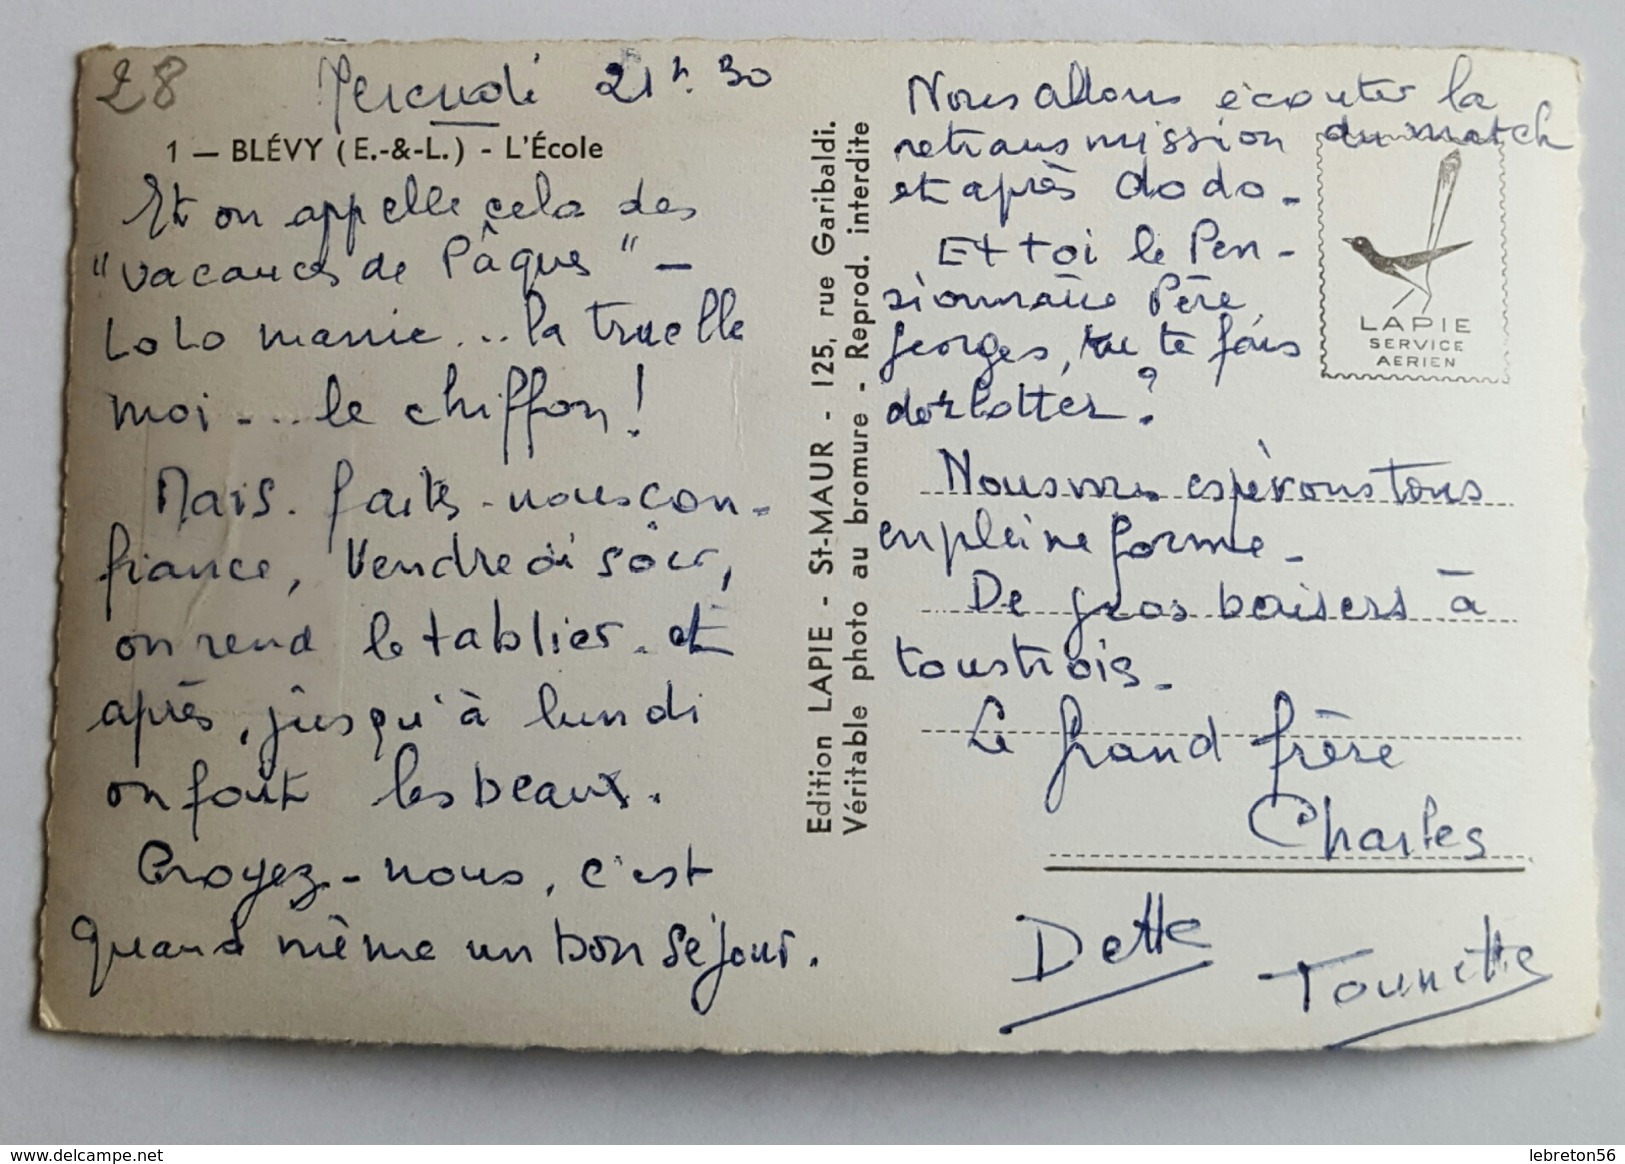 28
Mercredi 21h. 30
1 — BLÉVY (E.-&-L.) - L'École
Et on appelle cela des
"vacances de Pâques" —
LoLo manie... la truelle
moi - ... le chiffon !
Mais. faites-nous con-
fiance, Vendredi soir,
on rend le tablier. et
après, jusqu'à lundi
on fait les beaux.
Croyez-nous, c'est
quand même un bon séjour.
Edition LAPIE - St-MAUR - 125, rue Garibaldi.
Véritable photo au bromure - Reprod. interdite
Nous allons écouter la
retransmission du match
et après dodo.
Et toi le Pen-
sionnaire Père
Georges, tu te fais
dorlotter ?
LAPIE
SERVICE
AERIEN
Nous vous espérons tous
en pleine forme -
De gros baisers à
tous trois -
Le grand frère
Charles
Dette
Tounette
delcampe.net
lebreton56